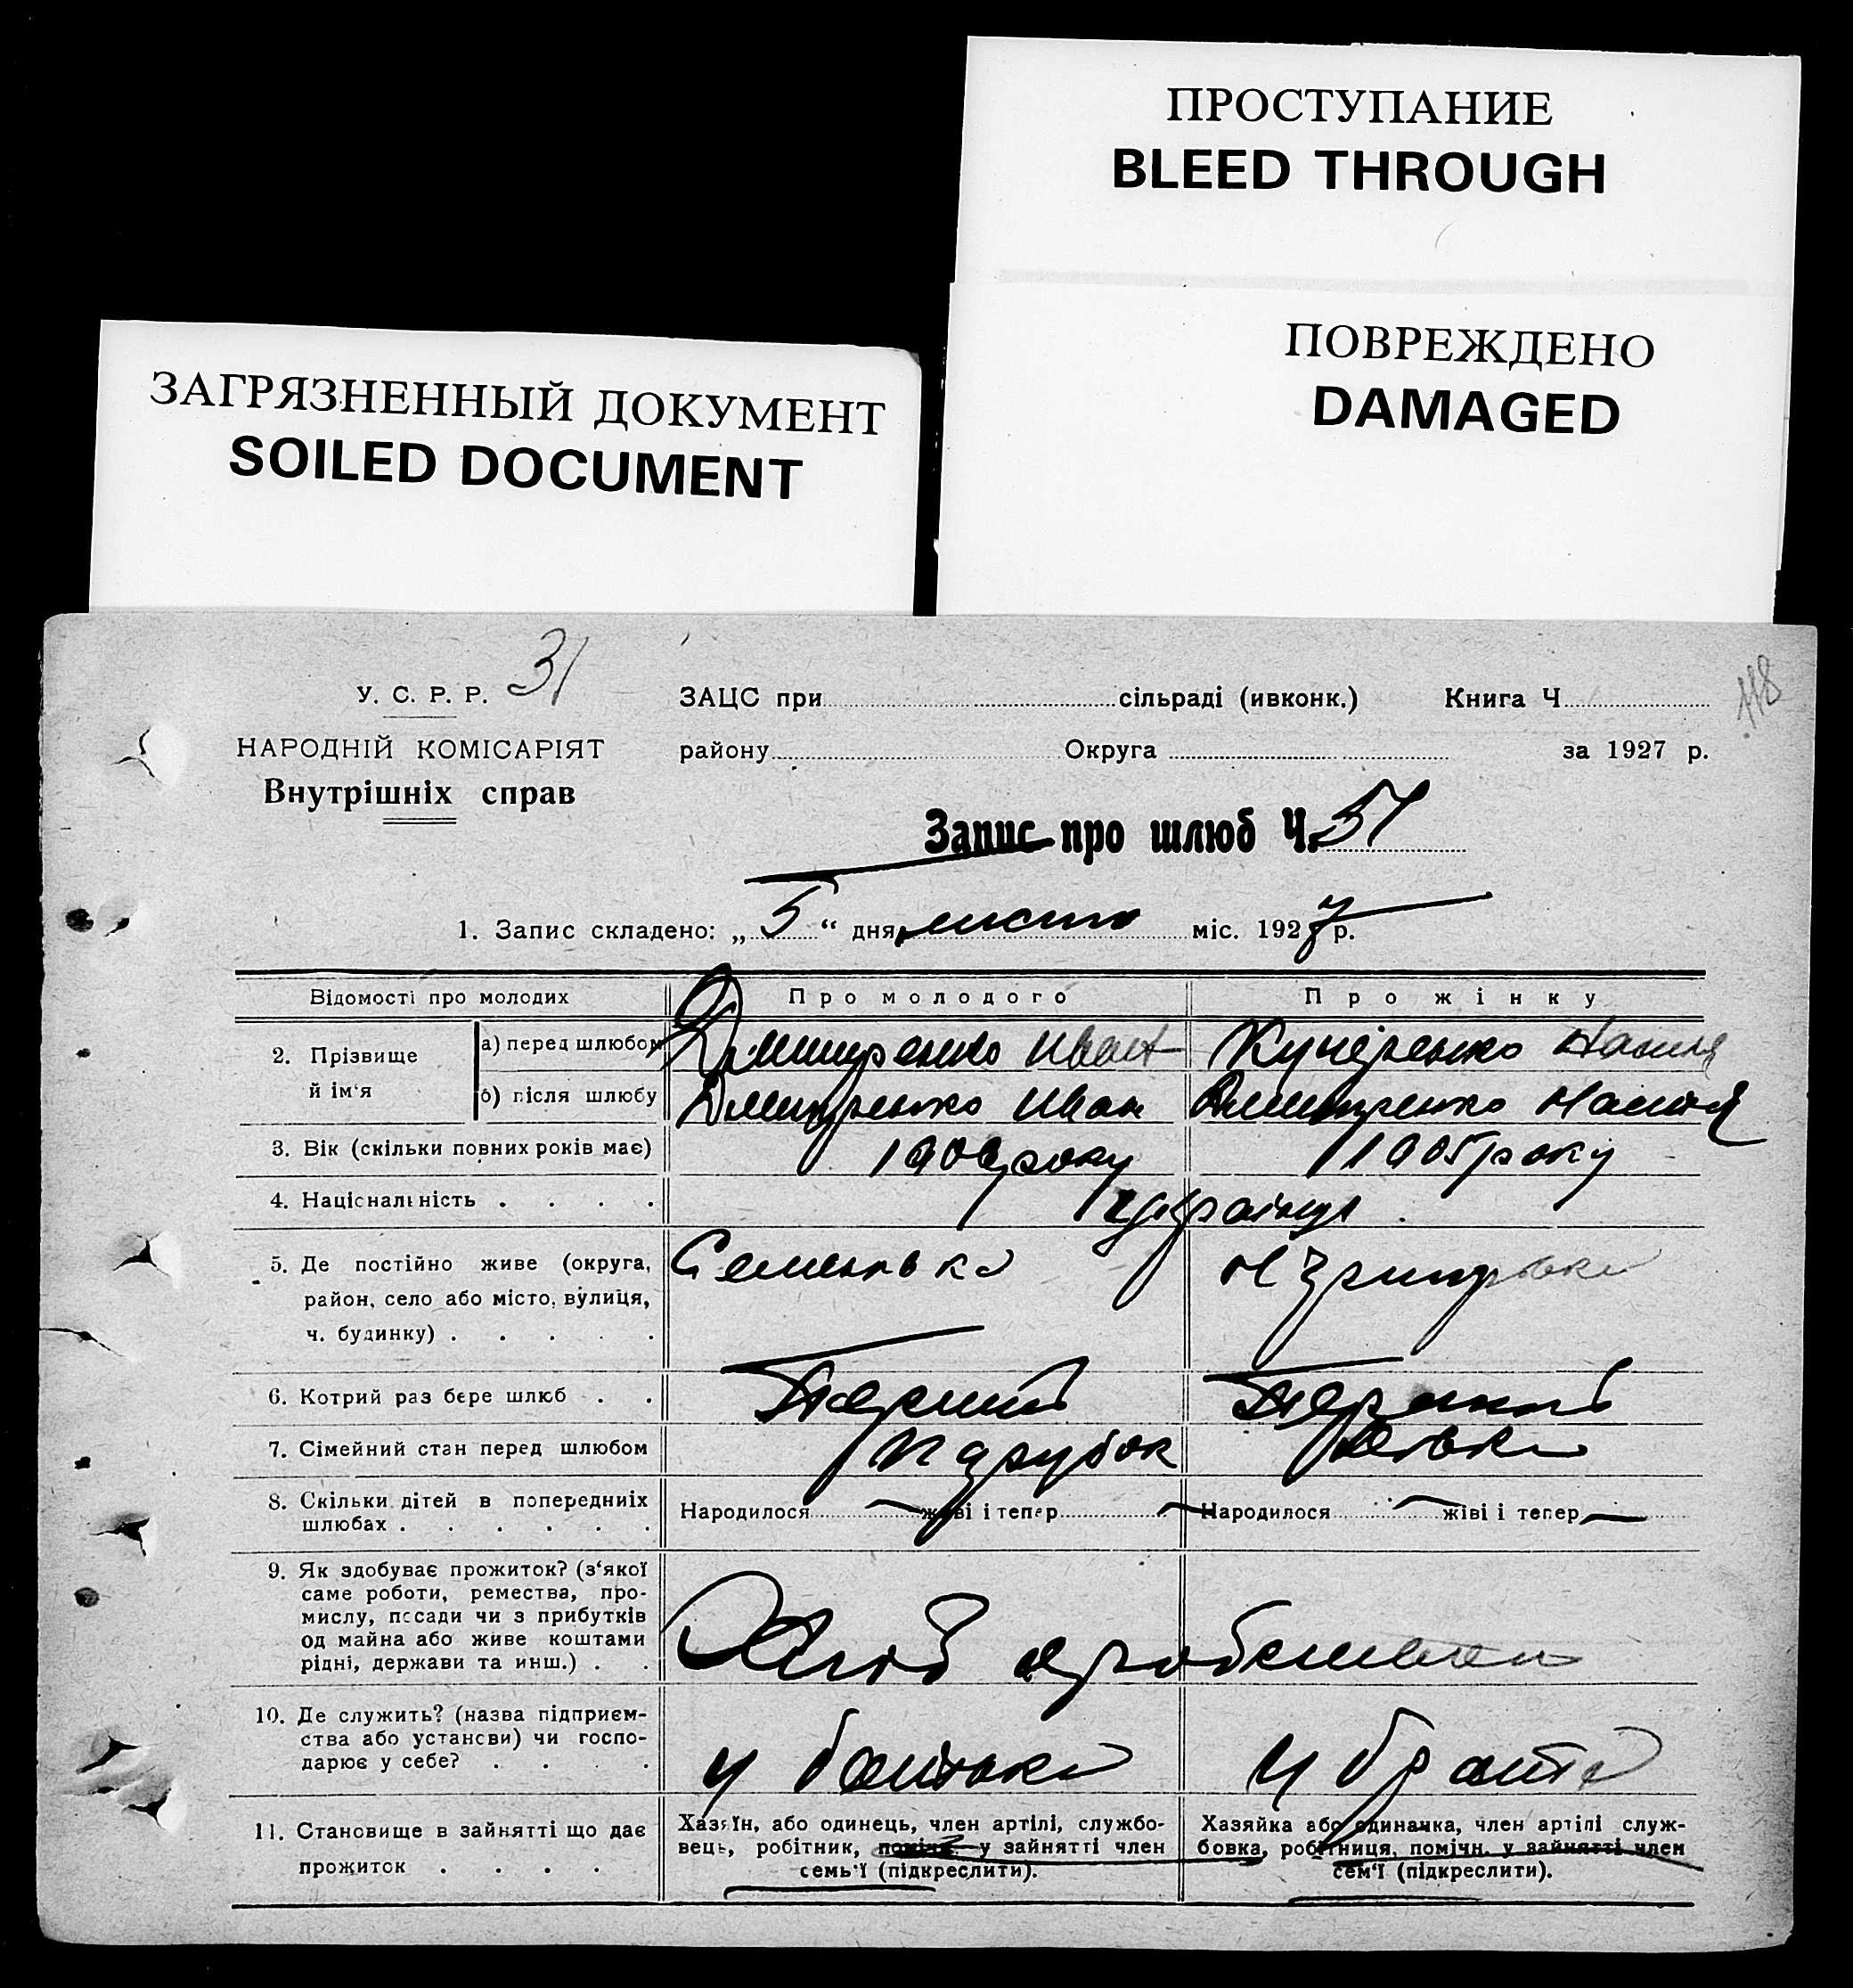 ПРОСТУПАНИЕ
BLEED THROUGH
ПОВРЕЖДЕНО
DAMAGED
ЗАГРЯЗНЕННЫЙ ДОКУМЕНТ
SOILED DOCUMENT
У. С. Р. Р. 31
118
НАРОДНІЙ КОМІСАРІЯТ
Внутрішніх справ
ЗАЦС при сільраді (ивконк.) Книга Ч
району Округа за 1927 р.
Запис про шлюб Ч. 51
1. Запис складено: „ 5 “ дня листп міс. 1927 р.
Відомості про молодих Про молодого Про жінку
2. Прізвище й ім'я
а) перед шлюбом Дмитренко Иван Кучеренко Настя
б) після шлюбу Дмитренко Иван Дмитренко Настя
3. Вік (скільки повних років має) 190 року 1905 року
4. Національність українці
5. Де постійно живе (округа, Семенівка
район, село або місто, вулиця,
ч. будинку)
6. Котрий раз бере шлюб Перший Перший
7. Сімейний стан перед шлюбом Парубок Дівка
8. Скільки дітей в попередниіх Народилося живі і тепер Народилося жіві і тепер
шлюбах
9. Як здобуває прожиток? (з'якої
саме роботи, ремества, про-
мислу, посади чи з прибутків
од майна або живе коштами
рідні, держави та инш.) Хліб
10. Де служить? (назва підприєм-
ства або устансви) чи госпо-
дарює у себе? у батька у брата
11. Становище в зайнятті що дає
прожиток
Хазяїн, або одинець, член артілі, службо-
вець, робітник, помічн. у зайнятті член
семь'ї (підкреслити).
Хазяйка або одиначка, член артілі служ-
бовка, робітниця, помічн. у зайнятті член
сем'ї (підкреслити).